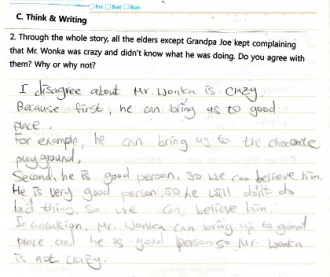 Fri Sat Sun
C. Think & Writing
2. Through the whole story, all the elders except Grandpa Joe kept complaining
that Mr. Wonka was crazy and didn't know what he was doing. Do you agree with
them? Why or why not?
I disagree about Mr. Wonka is crazy.
Because first, he can bring us to good
place.
for example, he can bring us to the chocolate
playground,
Second, he is good person, so we can believe him.
He is very good person, so he will don't do
bad thing, so we can believe him.
In conclusion, Mr. Wonka can bring us to good
place and he is good person so Mr. Wonka
is not crazy.